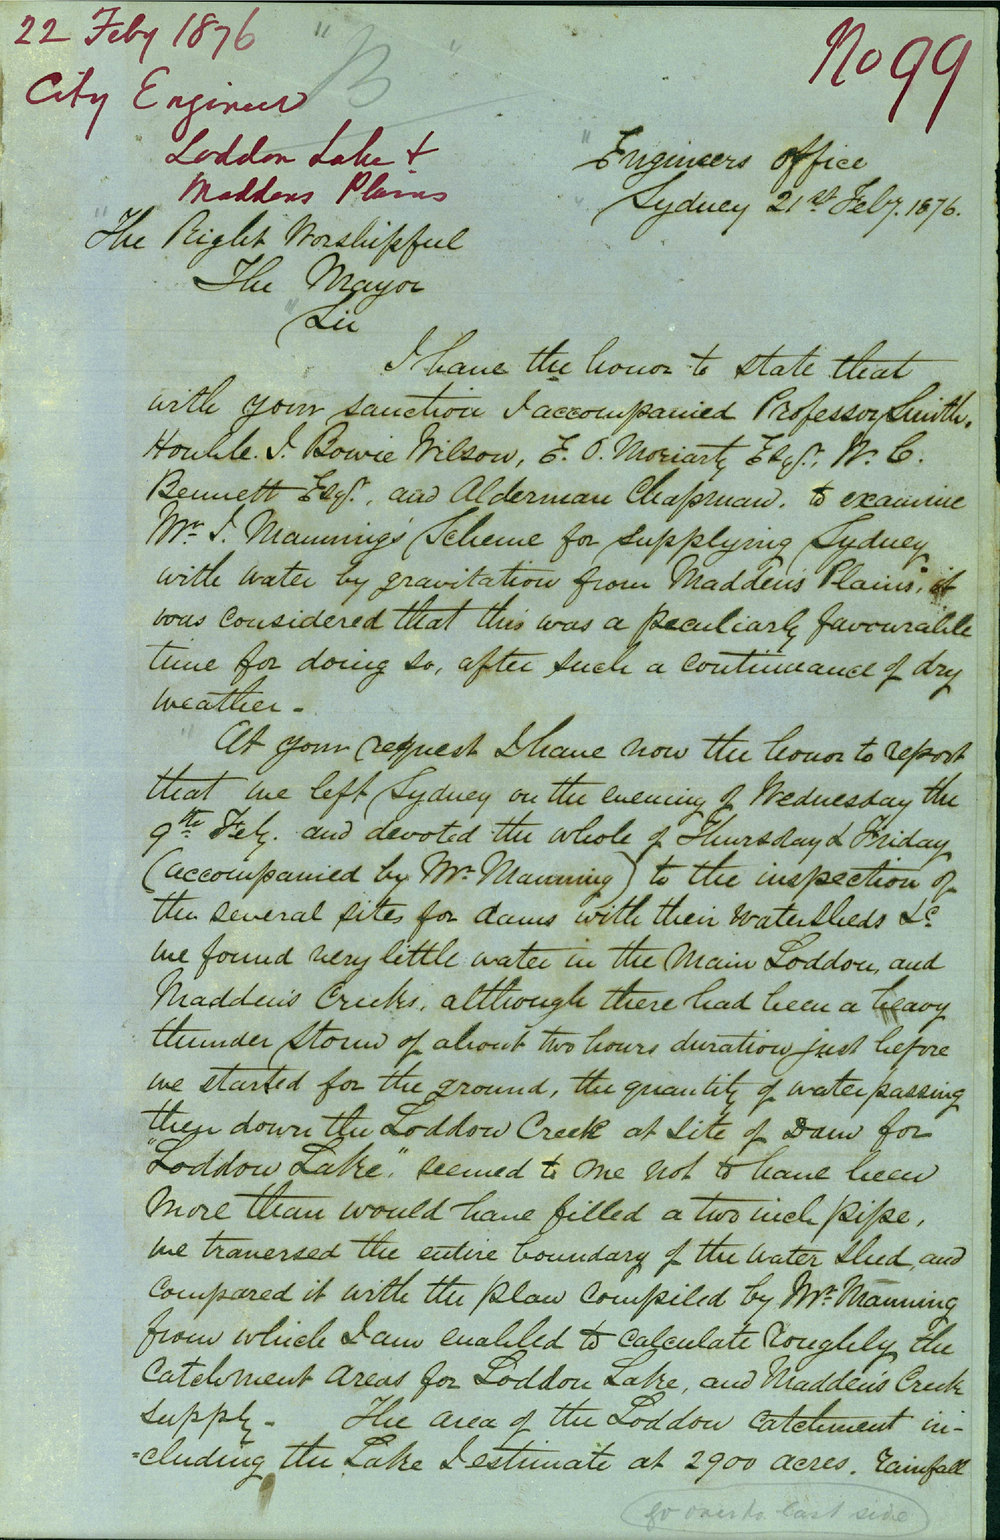 22 Feby 1876
"B"
No 99
City Engineer
Loddon Lake &
Maddens Plains
Engineers office
Sydney 21st Feby. 1876.
The Right Worshipful
The Mayor
Sir
I have the honor to state that
with your sanction I accompanied Professor Smith,
Honble. J. Bowie Wilson, E. O. Moriarty Esqr., W. C.
Bennett Esqr., and Alderman Chapman, to examine
Mr. J. Manning's Scheme for supplying Sydney
with water by gravitation from Madden's Plains, it
was considered that this was a peculiarly favourable
time for doing so, after such a continuance of dry
weather -
At your request I have now the honor to report
that we left Sydney on the evening of Wednesday the
9th Feby. and devoted the whole of Thursday & Friday
(accompanied by Mr. Manning) to the inspection of
the several sites for dams with their watersheds &c.
we found very little water in the Main Loddon, and
Madden's Creeks, although there had been a heavy
thunder storm of about two hours duration just before
we started for the ground, the quantity of water passing
then down the Loddon Creek at site of Dam for
"Loddon Lake," seemed to me not to have been
more than would have filled a two inch pipe,
we traversed the entire boundary of the water shed, and
compared it with the plan compiled by Mr. Manning
from which I am enabled to calculate roughly the
catchment areas for Loddon Lake, and Madden's Creek
supply - The area of the Loddon catchment in-
=cluding the Lake I estimate at 2900 acres. rainfall
go over to last side